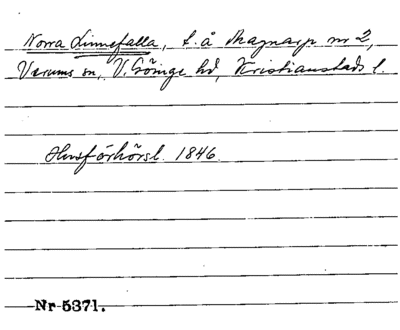 Norra Linnefalla, t. å Skagnarp nr 2,
Verums sn, V. Göinge hd, Kristianstads l.
Husförhörsl. 1846.
Nr 5371.